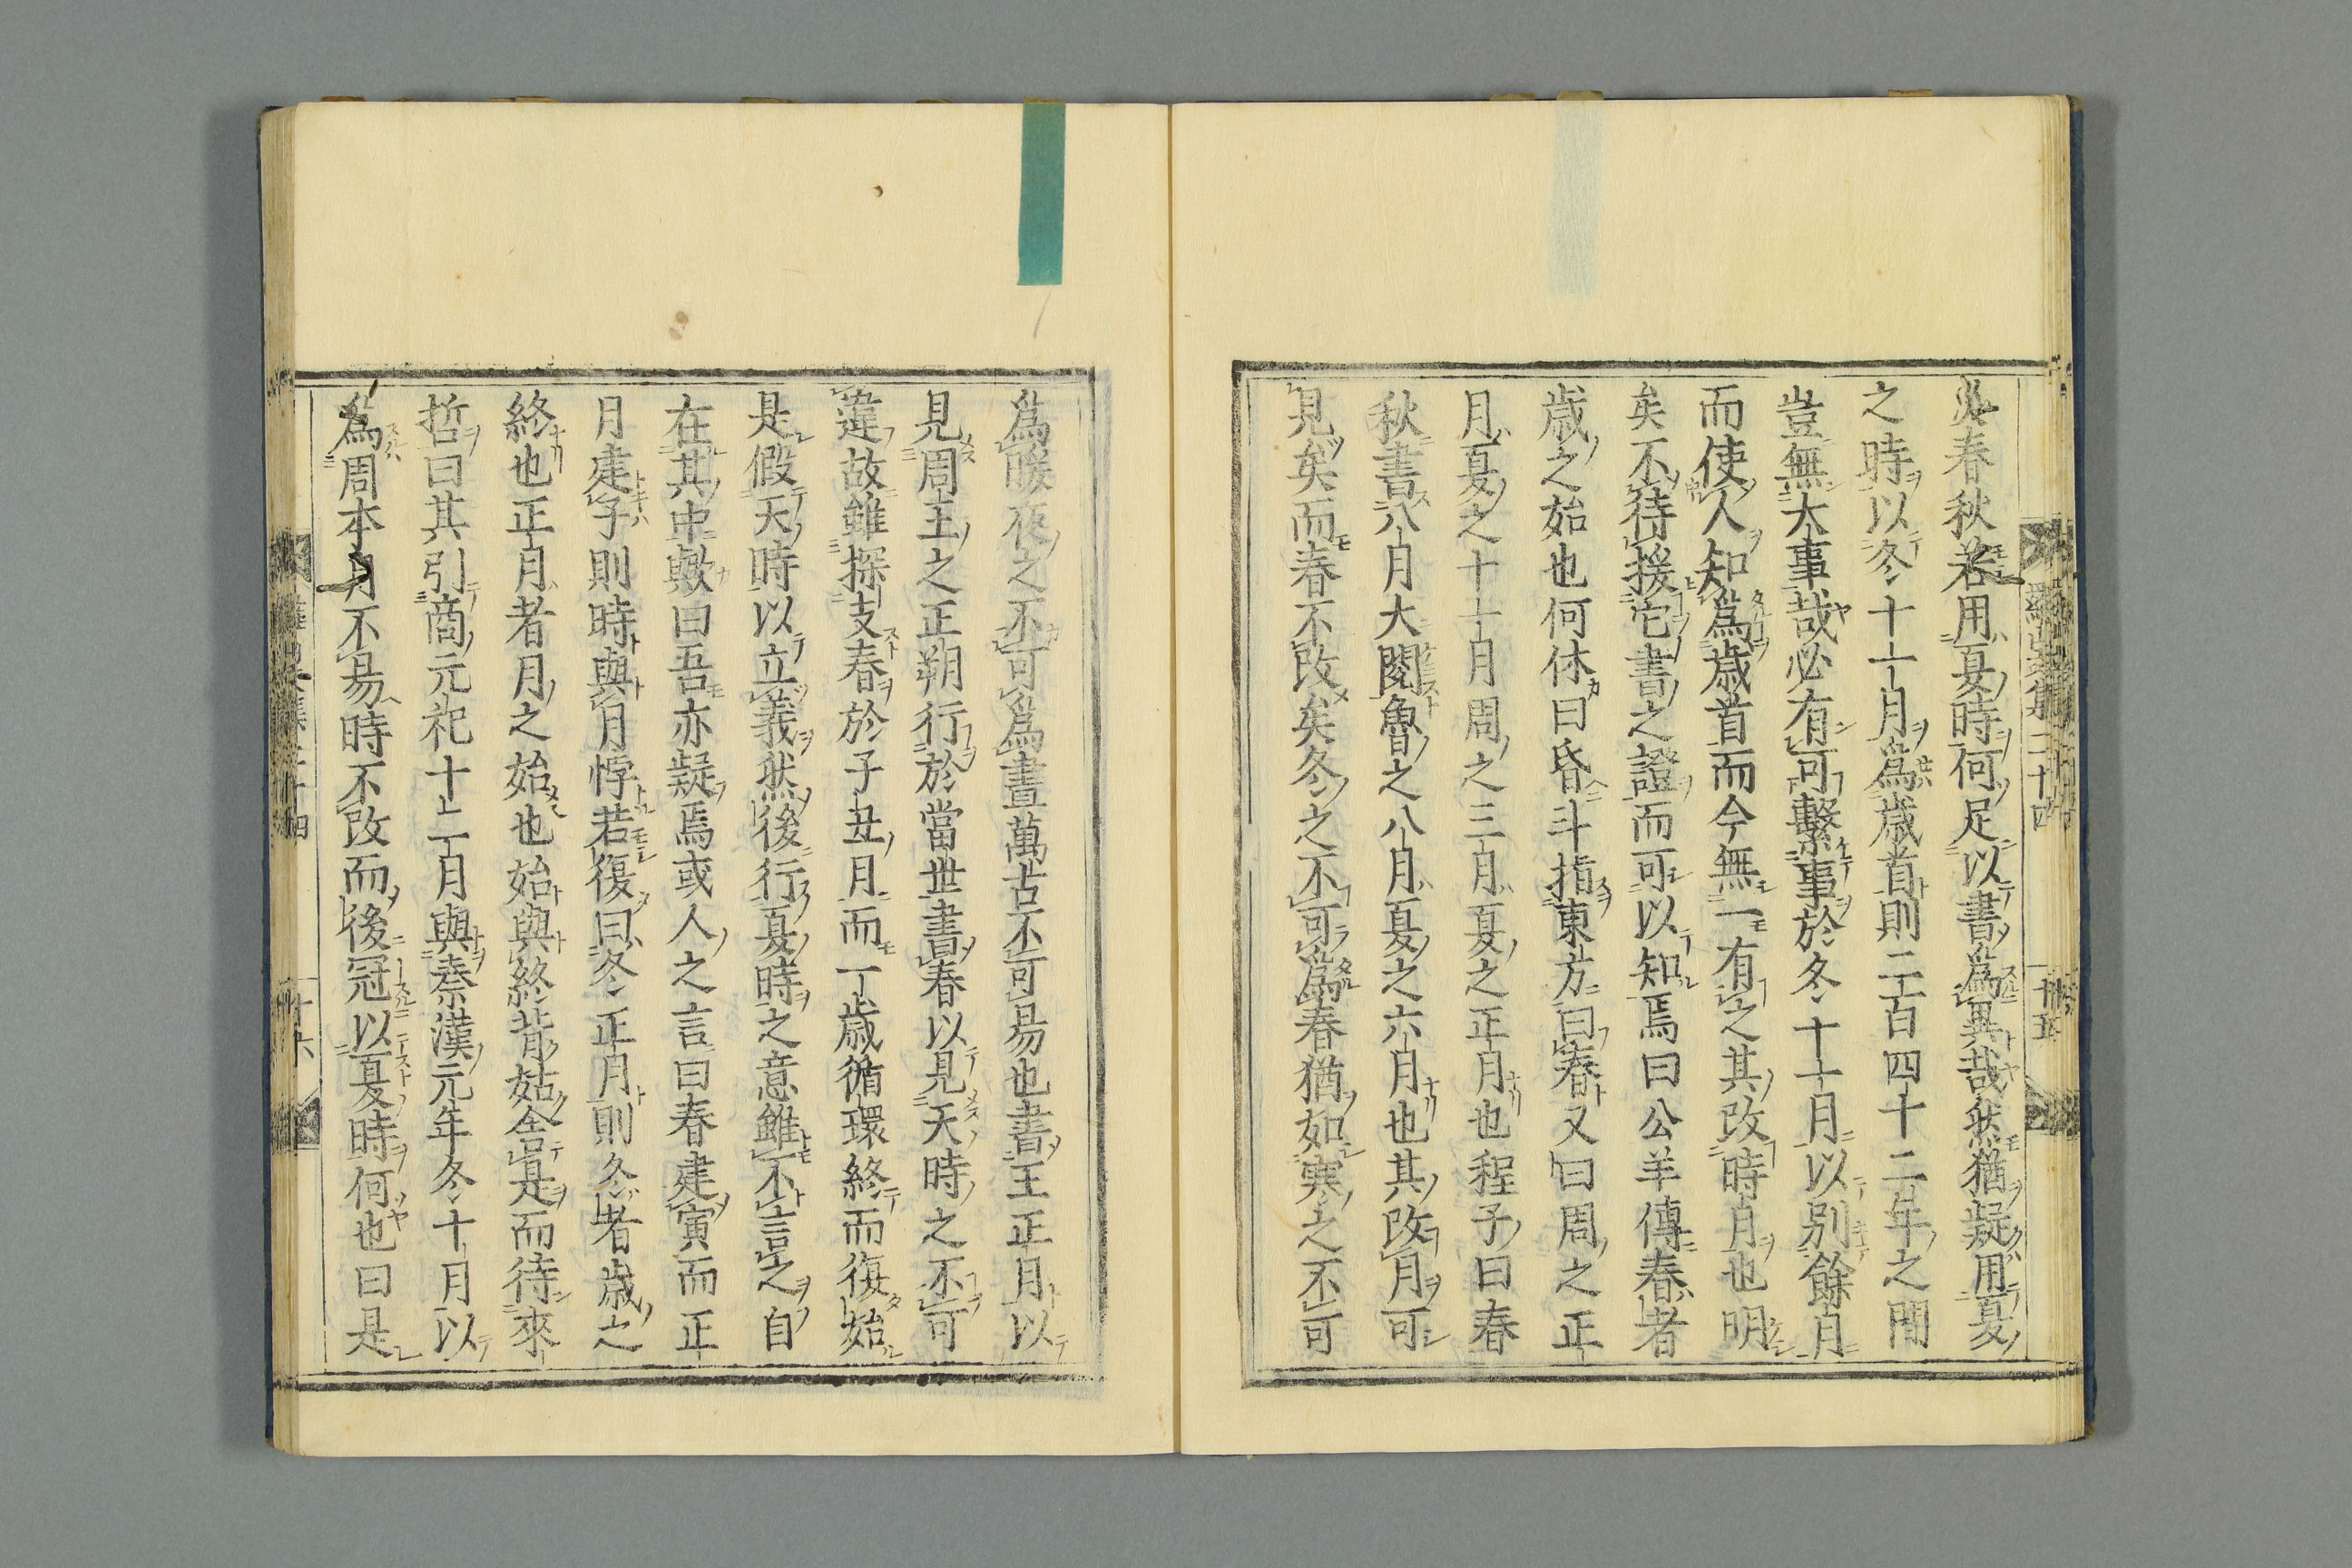 必春秋若用夏時何足以書爲異哉然猶疑用夏
之時以冬十一月爲歳首則二百四十二年之間
豈無大事哉必有可繋事於冬十一月以別餘月
而使人知爲歳首而今無一有之其改時月也明
矣不待援它書之證而可以知焉曰公羊傳春者
歳之始也何休曰昏斗指東方曰春又曰周之正
月夏之十一月周之三月夏之正月也程子曰春
秋書八月大閱魯之八月夏之六月也其改月可
見矣而春不改矣冬之不可爲春猶如寒之不可
爲暖夜之不可爲晝萬古不可易也書王正月以
見周王之正朔行於當世書春以見天時之不可
違故雖探支春於子丑月而一歳循環終而復始
是假天時以立義然後行夏時之意雖不言之自
在其中歟曰吾亦疑焉或人之言曰春建寅而正
月建子則時與月悖若復曰冬正月則冬者歳之
終也正月者月之始也始與終背姑舍是而待來
哲曰其引商元祀十二月與秦漢元年冬十月以
爲周本月不易時不改而後冠以夏時何也曰是